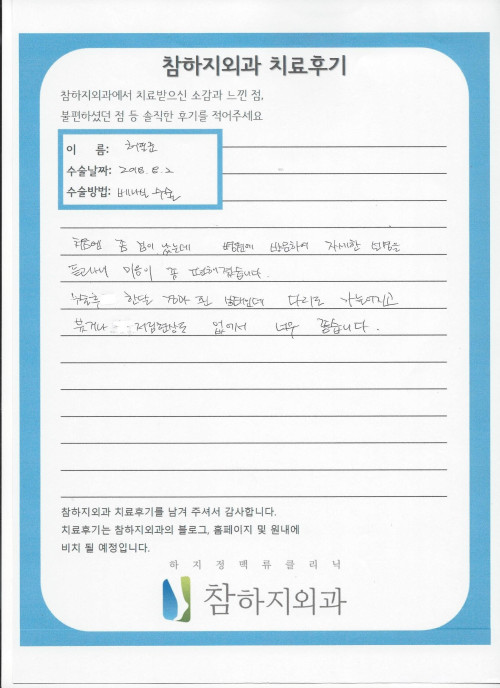 참하지외과 치료후기
참하지외과에서 치료받으신 소감과 느낀 점,
불편하셨던 점 등 솔직한 후기를 적어주세요
이 름:
수술날짜: 2018. 8. 2
수술방법: 베나실 수술
처음엔 좀 겁이 났는데 병원에 방문하여 자세한 설명을
듣고나니 마음이 좀 편해졌습니다.
수술후 한달 정도 된 다리도 가늘어지고
붓거나 저림현상도 없어서 너무 좋습니다.
참하지외과 치료후기를 남겨 주셔서 감사합니다.
치료후기는 참하지외과의 블로그, 홈페이지 및 원내에
비치 될 예정입니다.
하지정맥류클리닉
참하지외과